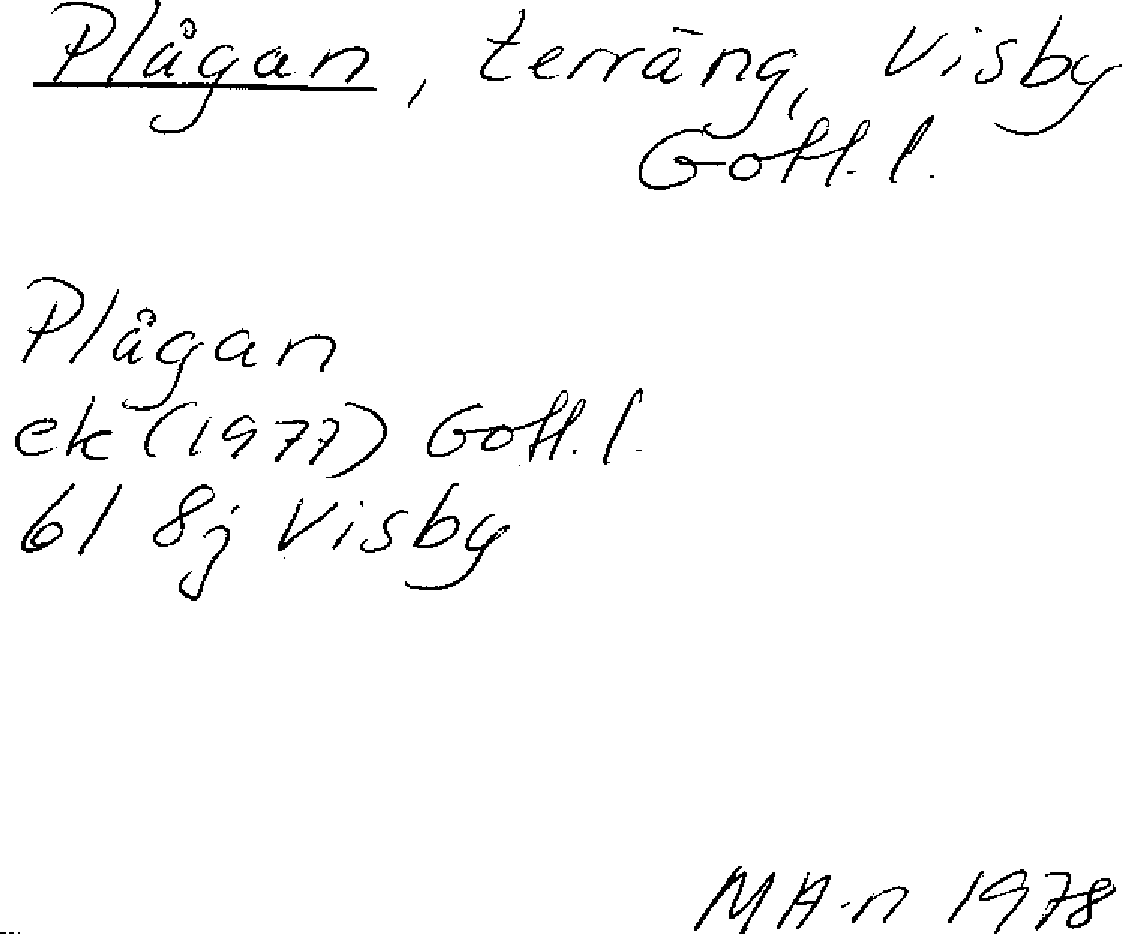 Plågan, terräng, Visby
Gotl. l.
Plågan
ek (1977) Gotl. l.
6I 8j Visby
MA-n 1978